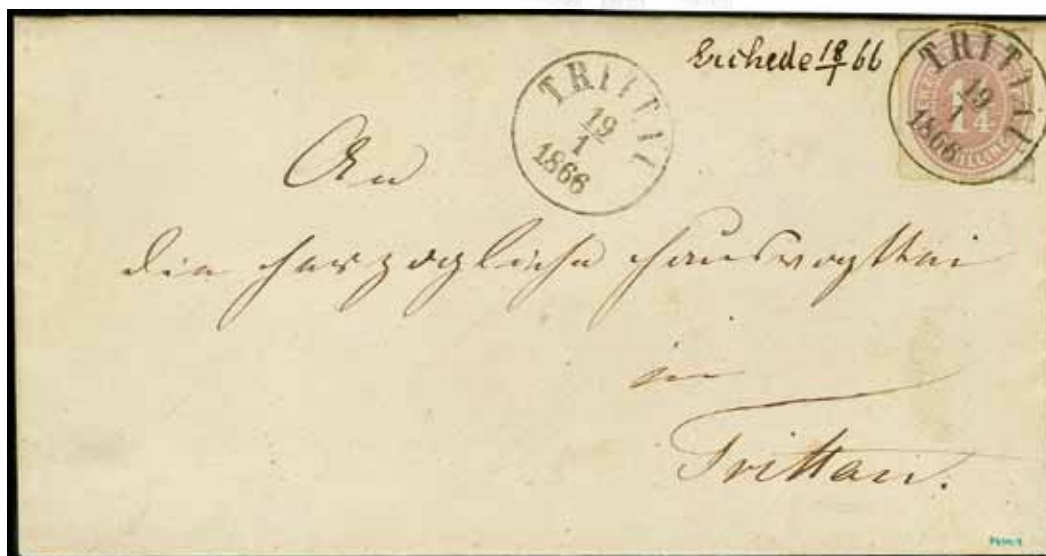 Eichede 18/1 66
TRITTAU
19/1
1866
TRITTAU
19/1
1866
1 1/4
An
die herzogliche Hausvogttei
in
Trittau.